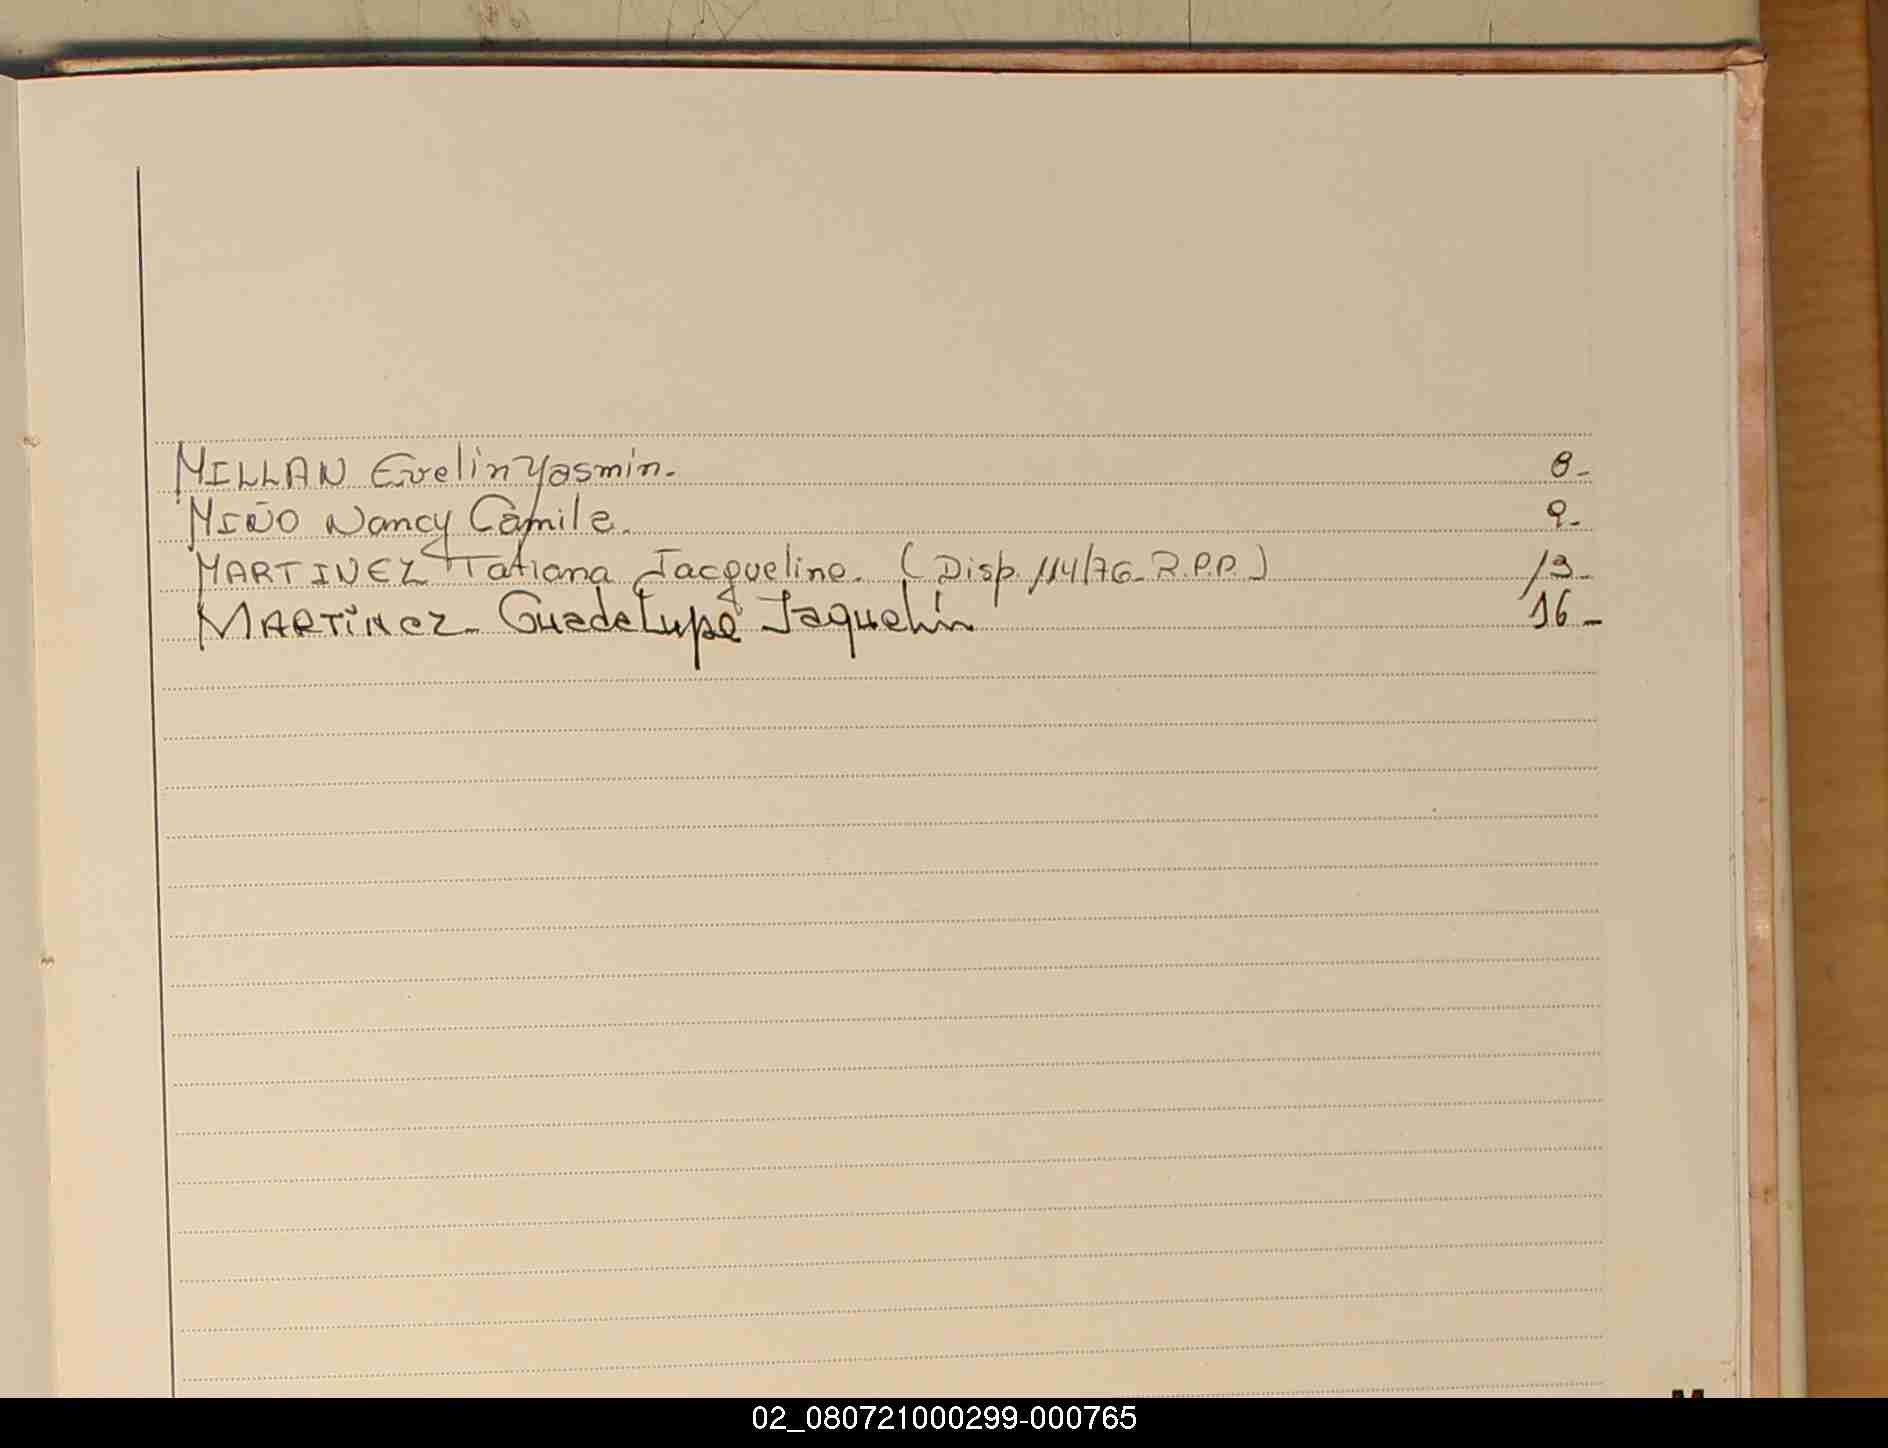 MILLAN Evelin Yasmin. 8-
MIÑO Nancy Camile. 9-
MARTINEZ Tatiana Jacqueline. (Disp. 114/76_ R.P.P.) 13-
MARTíNEZ_ Guadelupe Jaquelin 16-
M
02_080721000299-000765